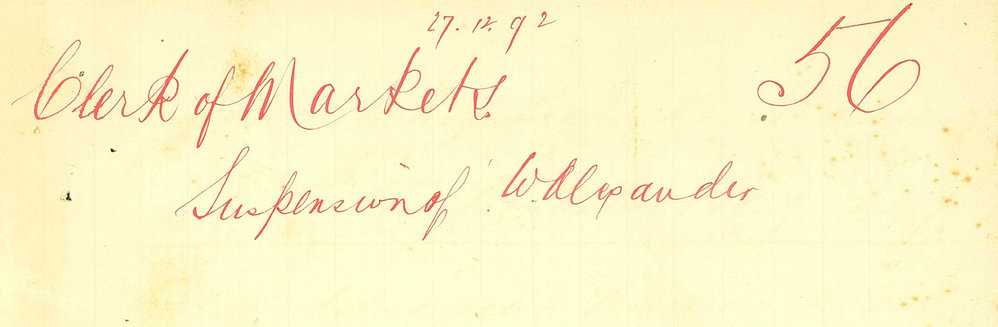 27.12.92
56
Clerk of Markets.
Suspension of W. Alexander